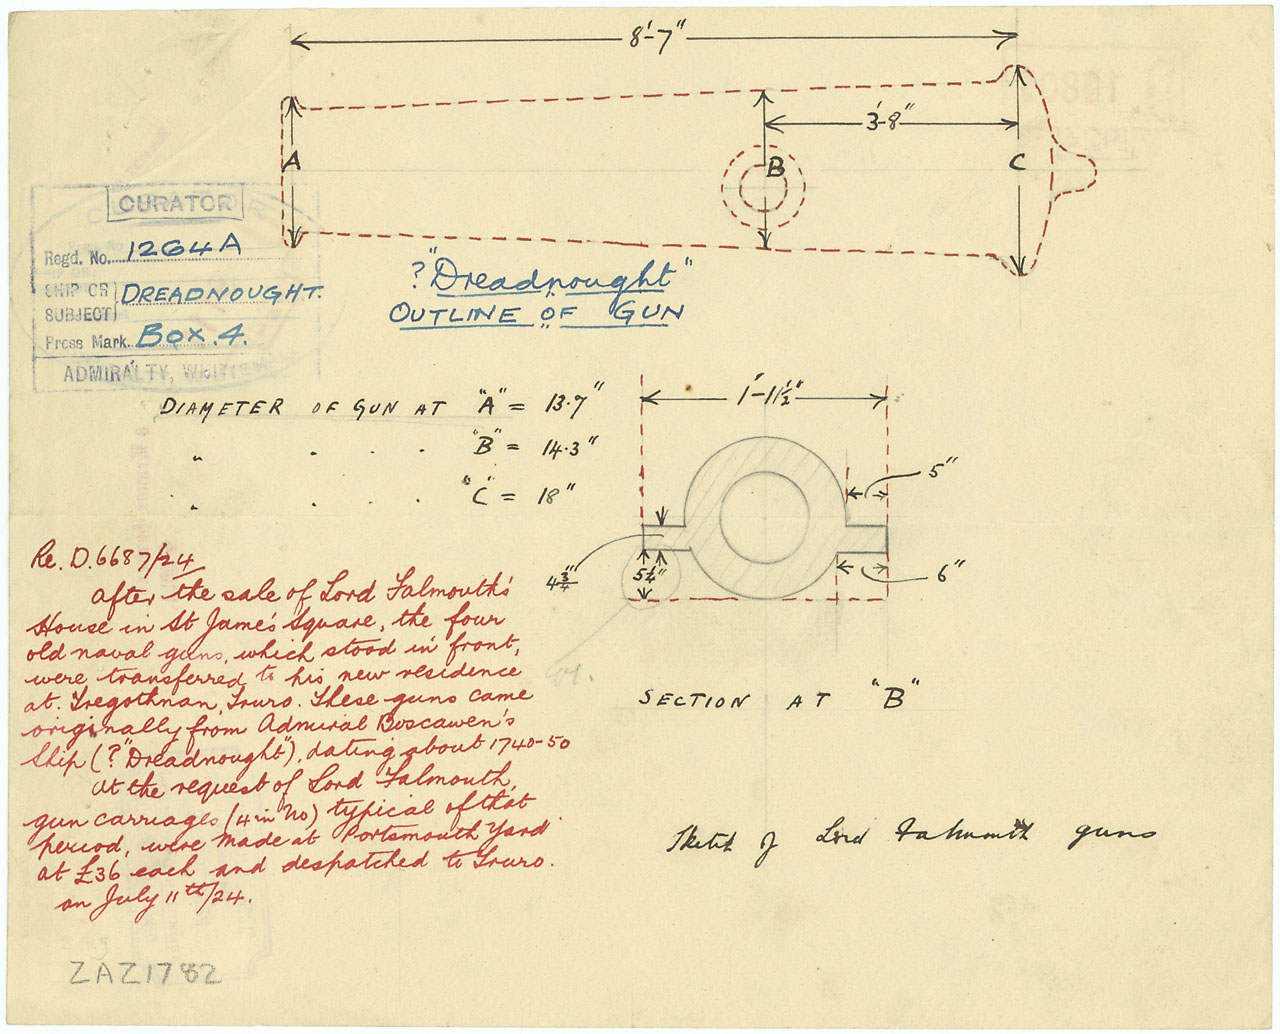 8'-7"
3'-8"
A
B
C
CURATOR
Regd. No. 1264A
SHIP OR SUBJECT DREADNOUGHT.
Press Mark. Box. 4.
ADMIRALTY,
? "Dreadnought"
OUTLINE OF GUN
DIAMETER OF GUN AT "A" = 13.7"
" . . . "B" = 14.3"
" . . . "C" = 18"
1'-1 1/2"
5"
4 3/4"
5 1/4"
6"
SECTION AT "B"
Re. D.6687/24
After the sale of Lord Falmouth's
House in St James's Square, the four
old naval guns, which stood in front,
were transferred to his new residence
at Tregothnan, Truro. These guns came
originally from Admiral Boscawen's
Ship (? "Dreadnought"), dating about 1740-50
At the request of Lord Falmouth,
gun carriages (4 in No) typical of that
period, were made at Portsmouth Yard
at £36 each and despatched to Truro.
on July 11th/24.
Sketch of Lord Falmouth guns
ZAZ1782